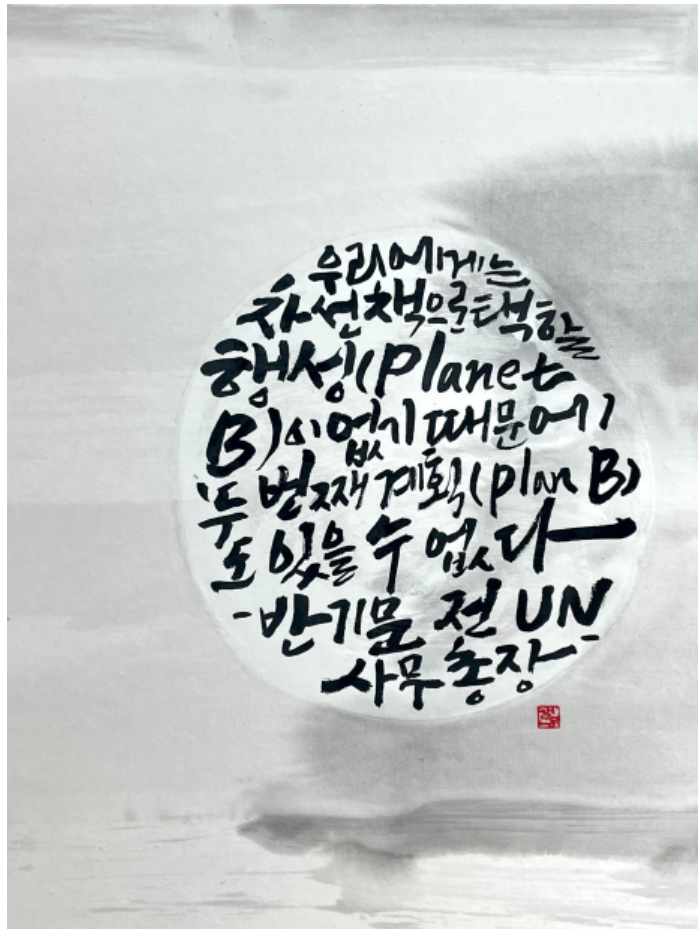 우리에게는
차선책으로 택할
행성(Planet
B)이 없기 때문에,
두 번째 계획(plan B)
도 있을 수 없다
-반기문 전 UN
사무총장-